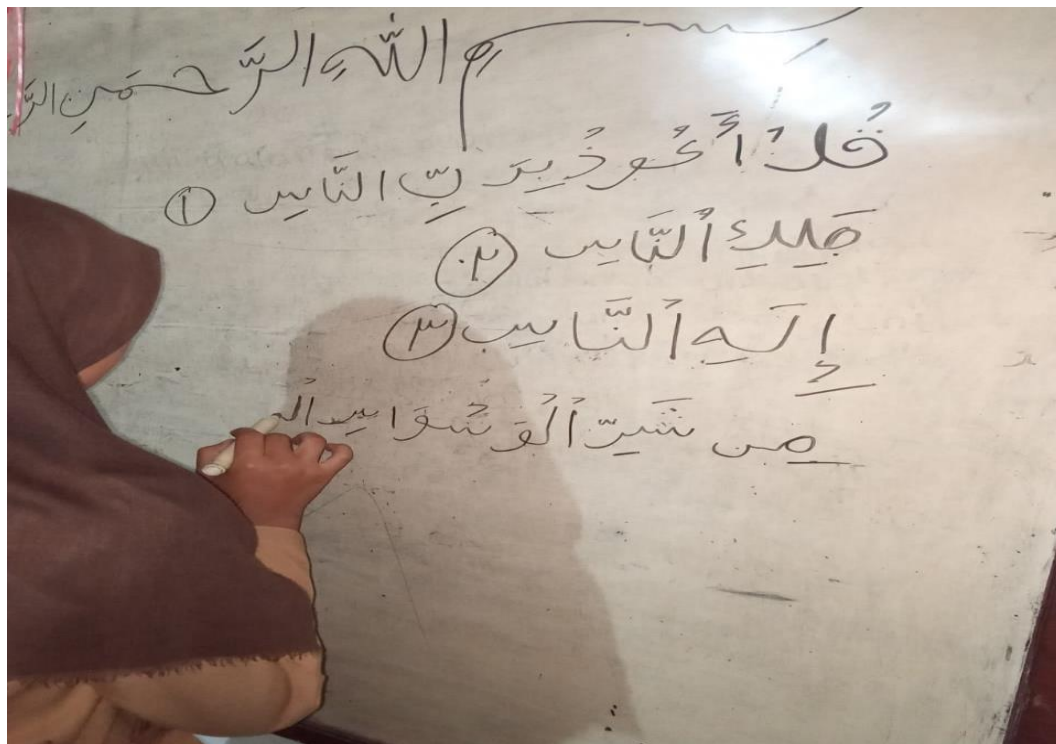 بِسْمِ اللّٰهِ الرَّحْمَنِ الرَّ
قُلْ أَعُوذُ بِرَبِّ النَّاسِ ①
مَلِكِ ٱلنَّاسِ ②
إِلَٰهِ ٱلنَّاسِ ③
مِن شَرِّ ٱلْوَسْوَاسِ ٱلْ